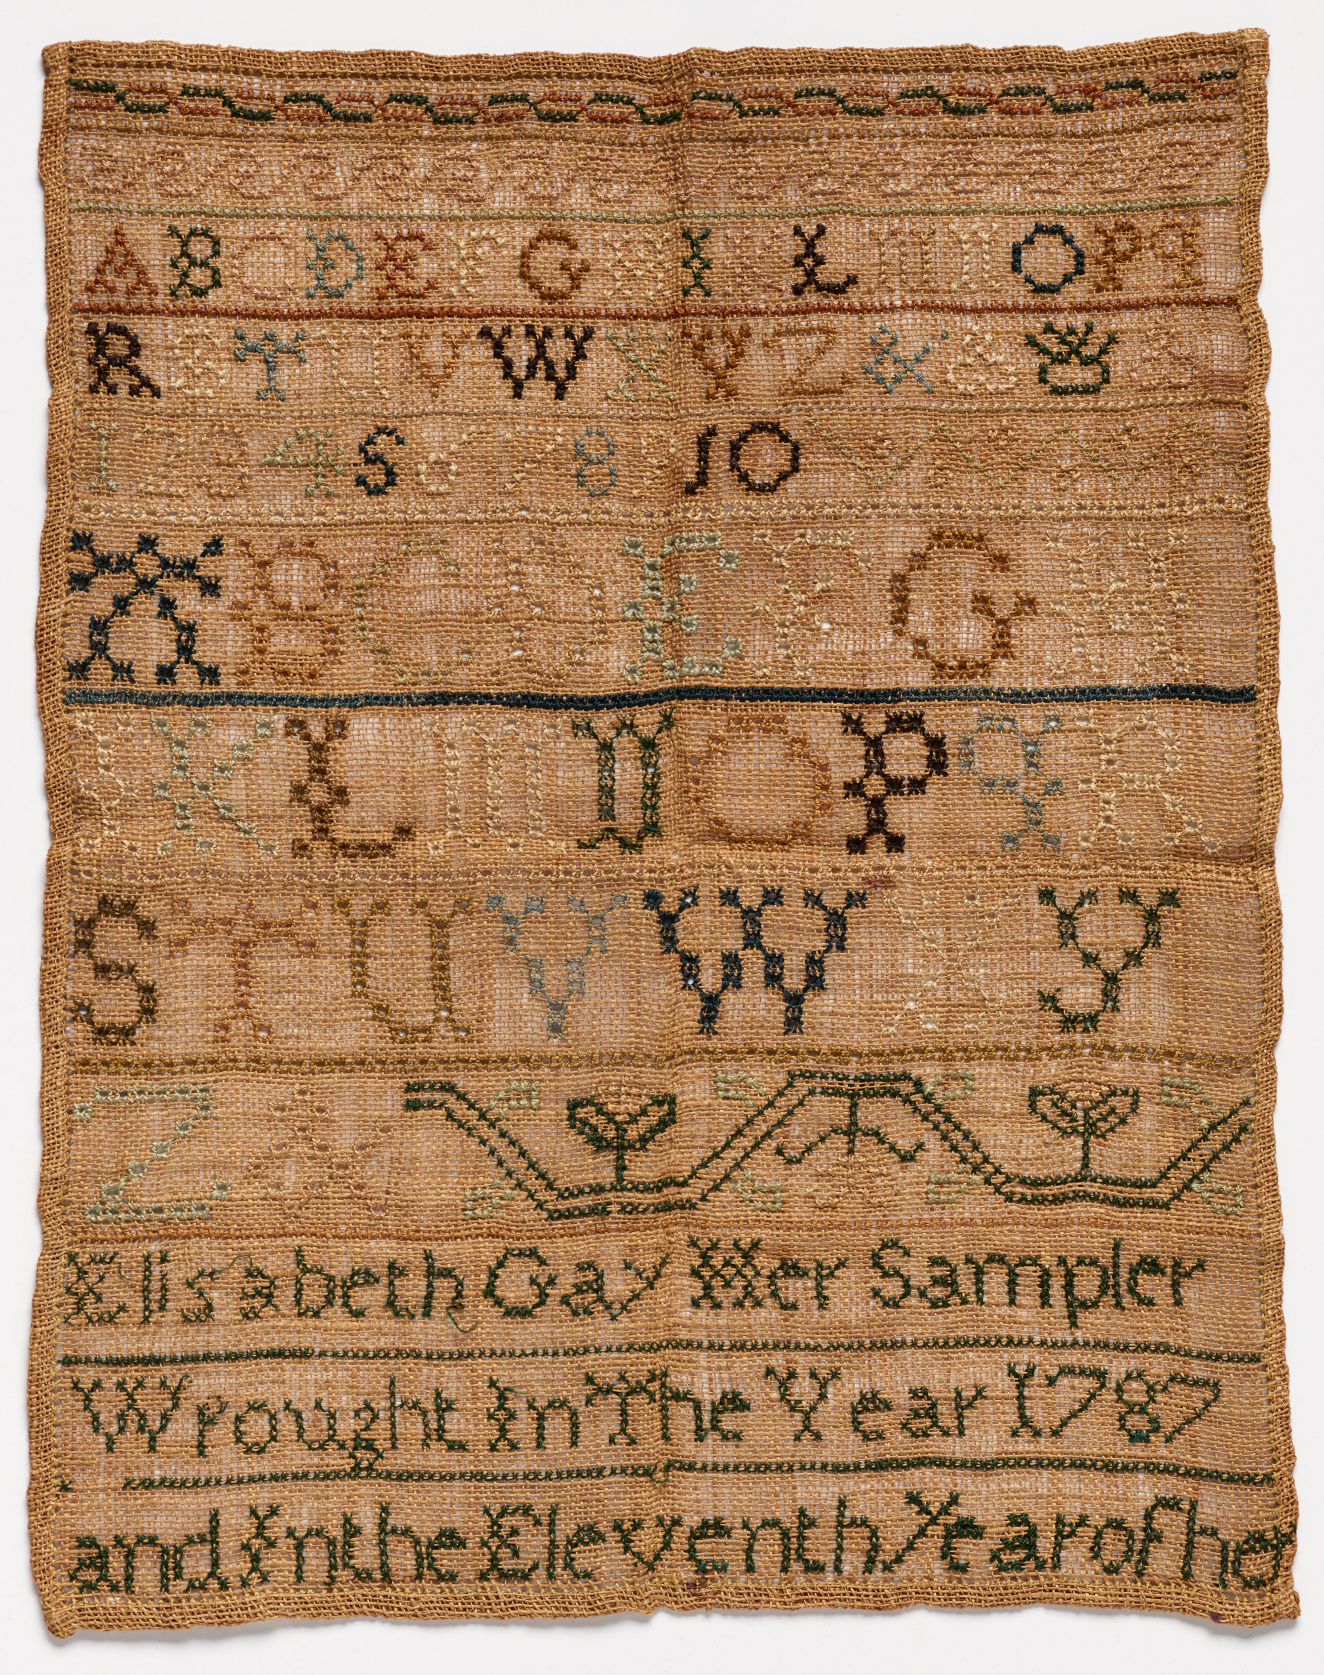 A B C D E F G H I K L M N O P q
R S T U V W X Y Z & 8
1 2 3 4 5 6 7 8 9 10
A B C D E F G H
I K L M N O P q R
S T U V W X y
Z A
Elisabeth Gay Her Sampler
Wrought In The Year 1787
and In the Eleventh Year of he